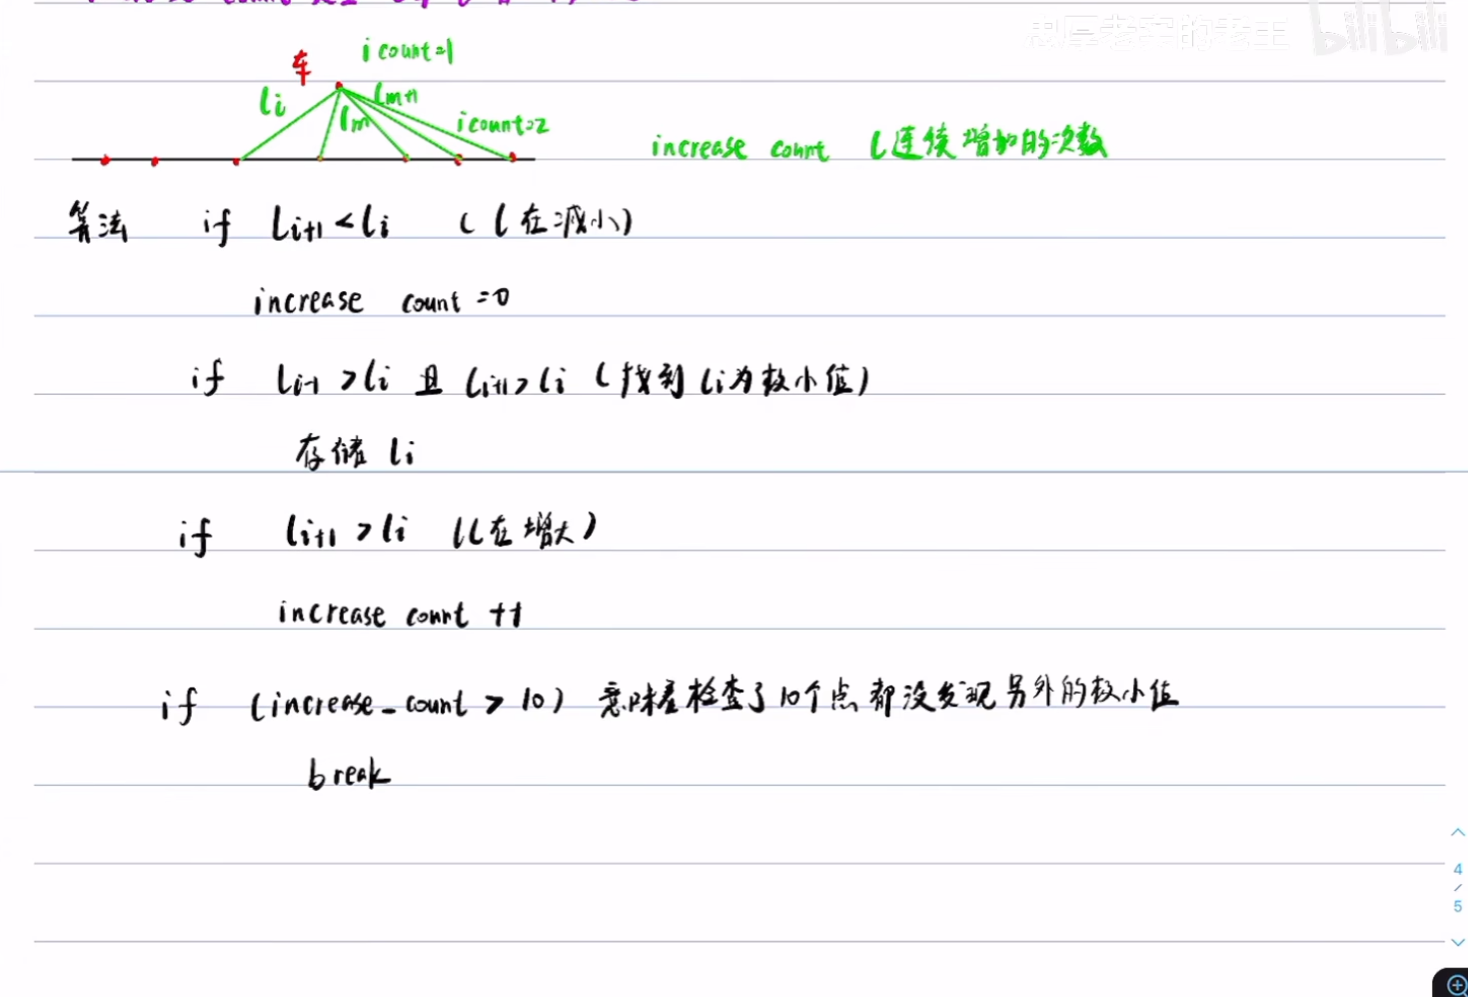 忠厚老实的老王 bilibili
车 i count=1
li lm lm+1 i count=2
increase count l连续增加的次数
算法 if li+1 < li ( l在减小)
increase count =0
if li-1 > li 且 li+1 > li (找到li为极小值)
存储 li
if li+1 > li (l在增大)
increase count ++
if (increase_count > 10) 意味着检查了10个点都没发现另外的极小值
break
4
/
5